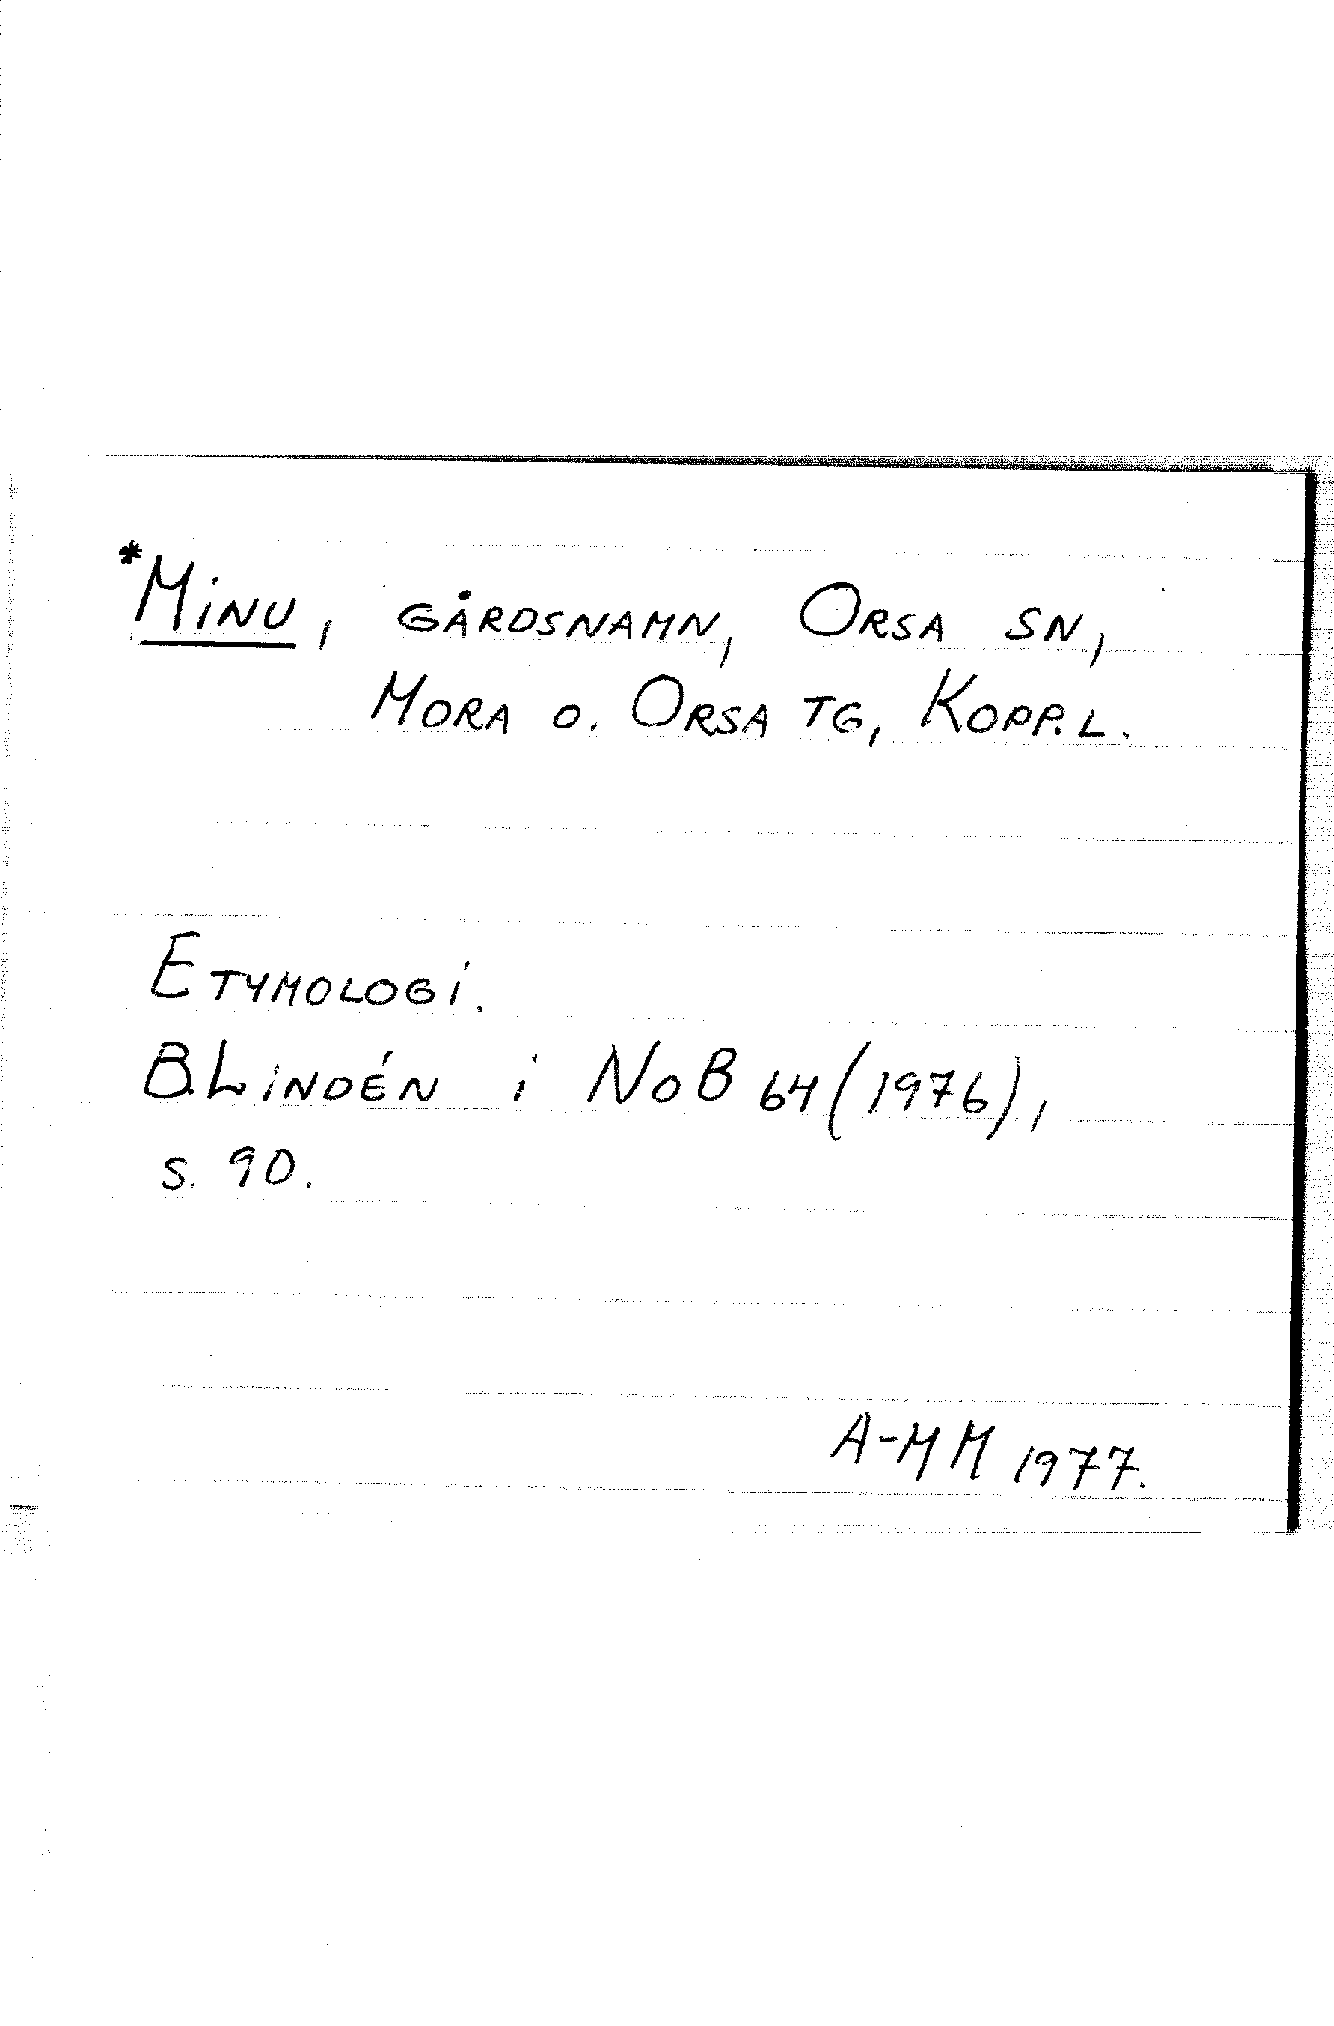 *Minu, gårdsnamn, Orsa sn,
Mora o. Orsa tg, Kopp. l.
Etymologi.
B. Lindén i NoB 64 (1976),
s. 90.
A-M M 1977.